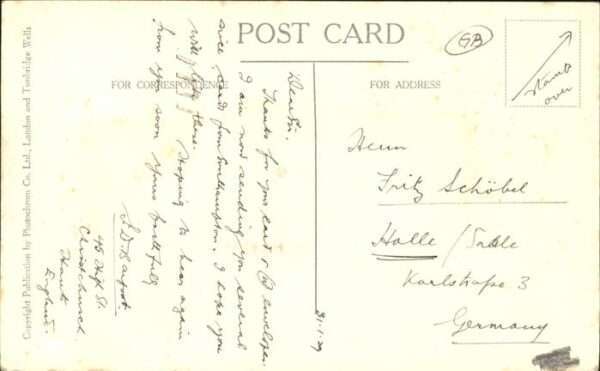 POST CARD
GA
stamp
over
FOR CORRESPONDENCE
FOR ADDRESS
Copyright Publication by Photochrom Co. Ltd., London and Tunbridge Wells
31-1-29
Dear Sir.
Thanks for your card & envelopes
I am now sending you several
nice cards from Southampton. I hope you
will like these. Hoping to hear again
from you soon Yours faithfully
45 High St.
Christchurch
Hants
England.
Herrn
Fritz Schöbel
Halle / Saale
Karlstraße 3
Germany